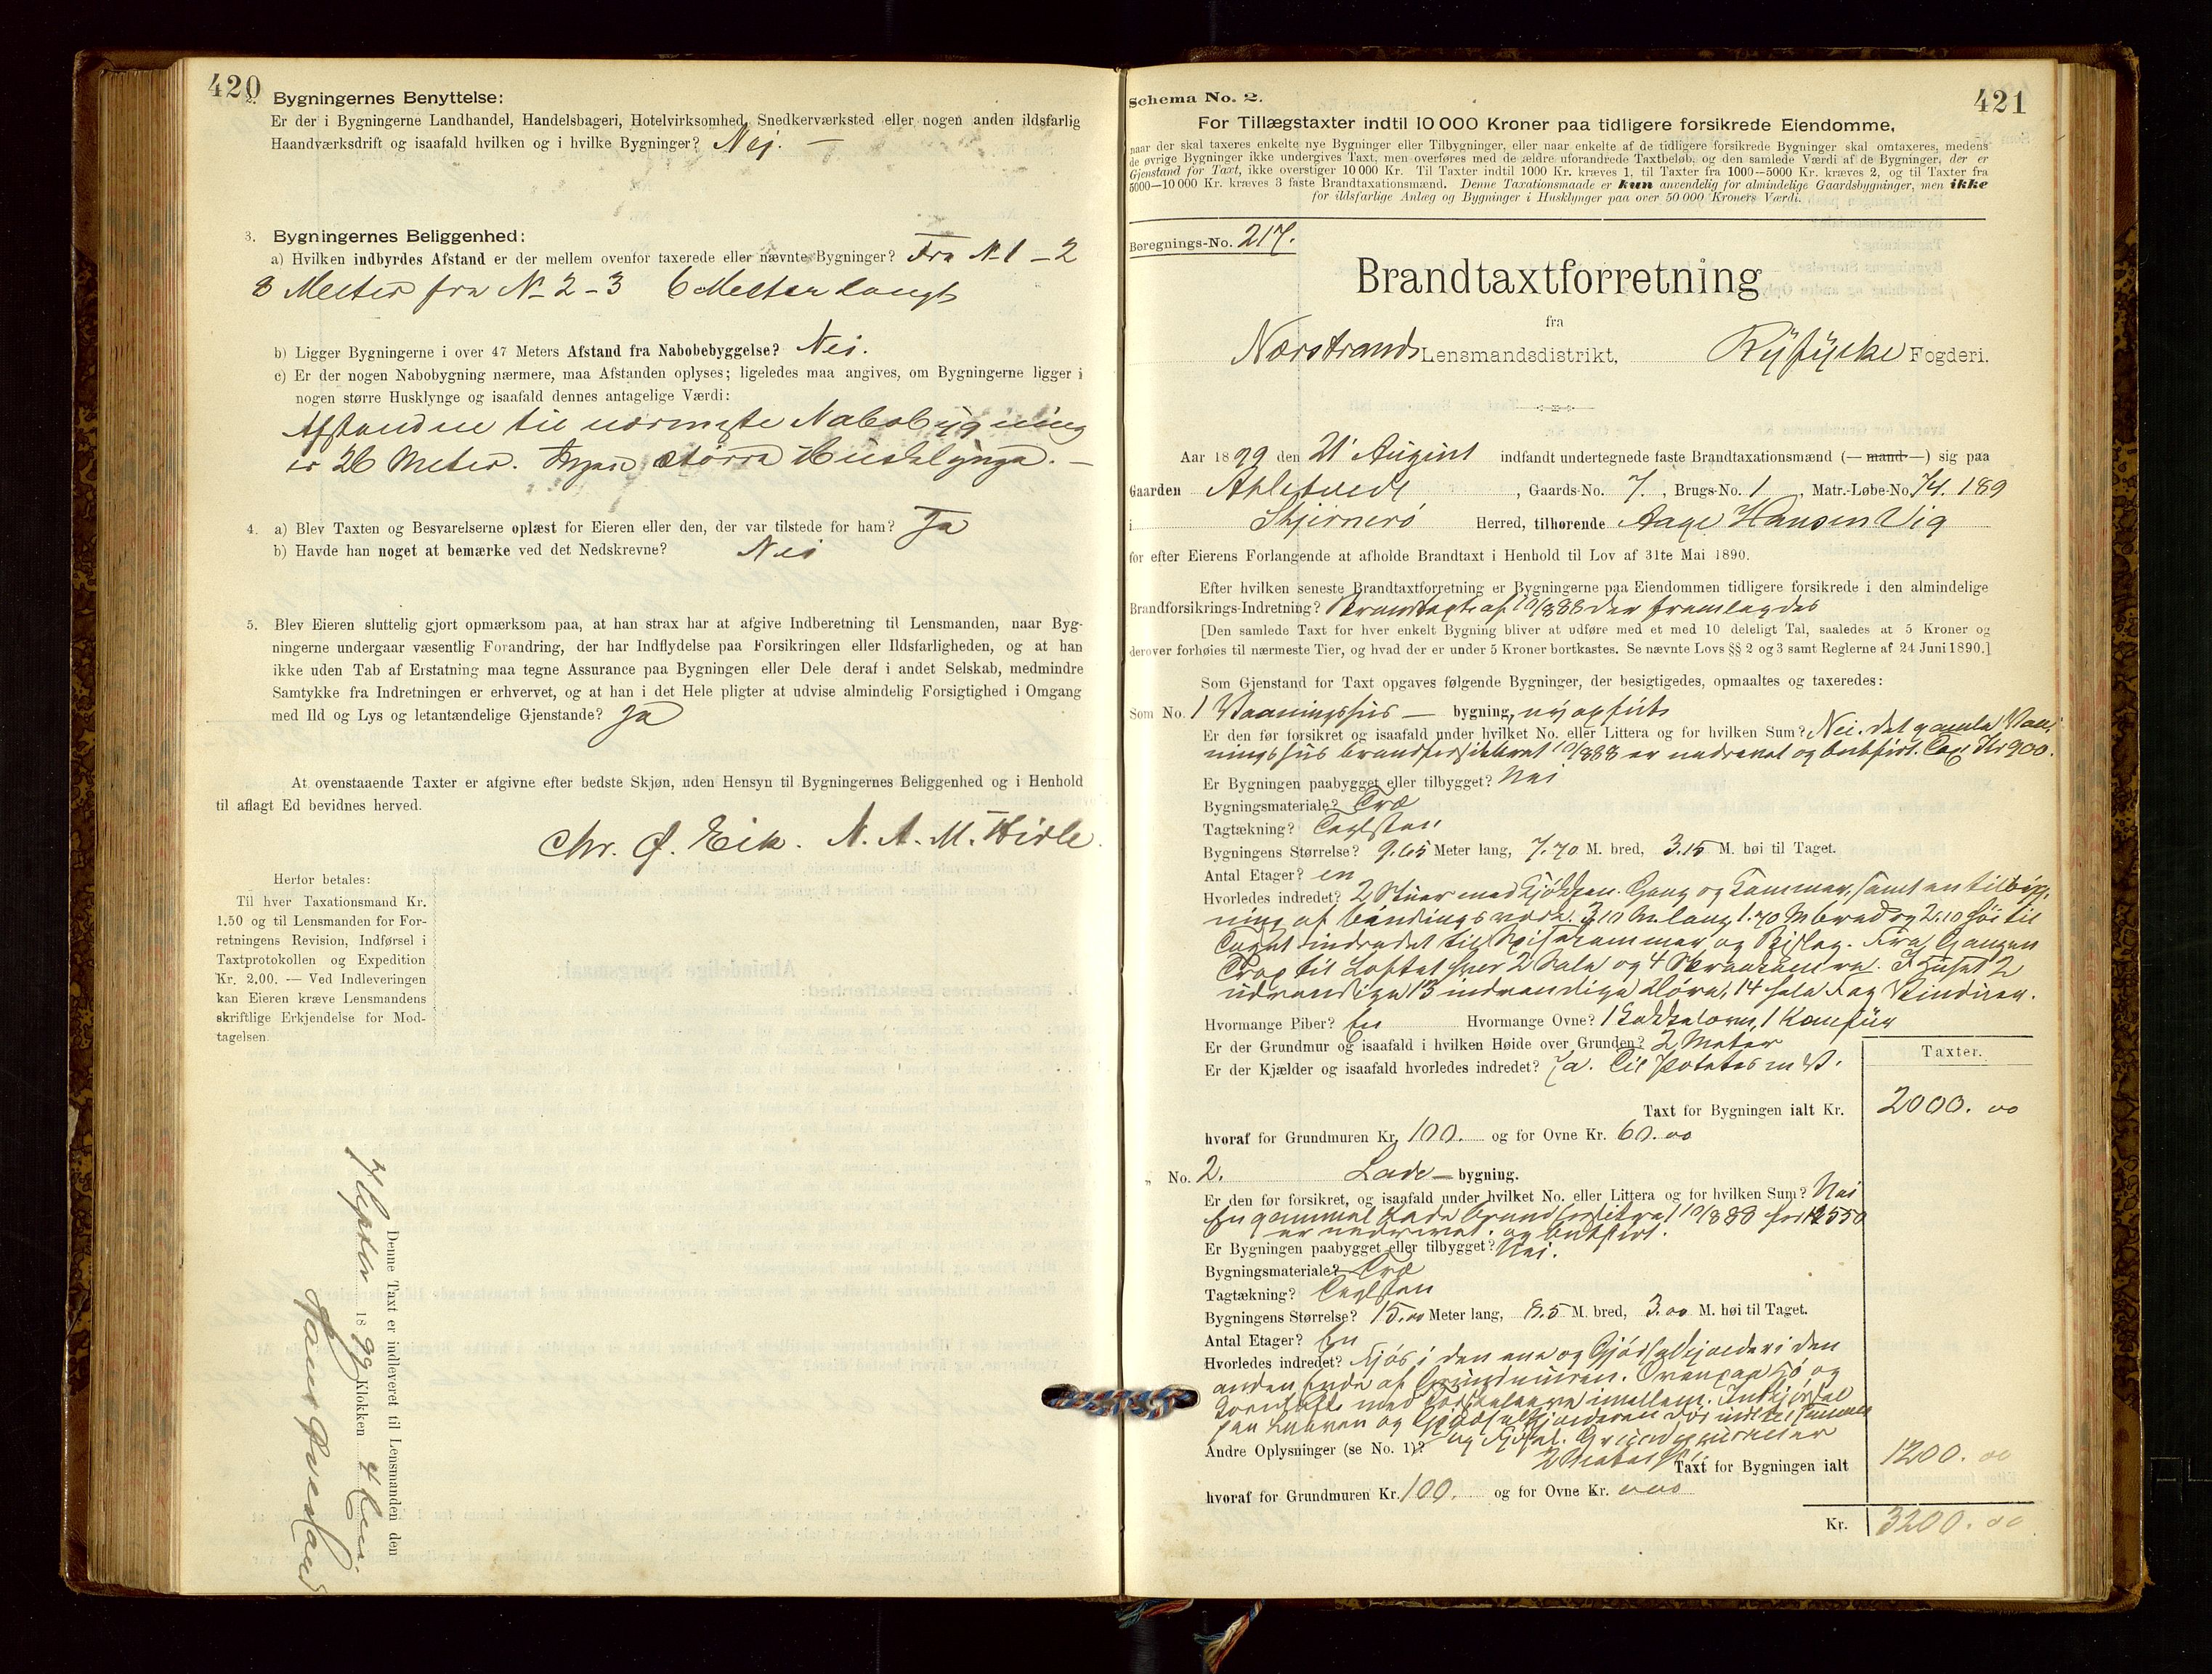 420
2. Bygningernes Benyttelse:
Er der i Bygningerne Landhandel, Handelsbageri, Hotelvirksomhed, Snedkerværksted eller nogen anden ildsfarlig
Haandværksdrift og isaafald hvilken og i hvilke Bygninger? Nej. —
3. Bygningernes Beliggenhed:
a) Hvilken indbyrdes Afstand er der mellem ovenfor taxerede eller nævnte Bygninger? Fra N 1 – 2
8 Meter fra N – 2 – 3 6 Meter langt
b) Ligger Bygningerne i over 47 Meters Afstand fra Nabobebyggelse? Nei.
c) Er der nogen Nabobygning nærmere, maa Afstanden oplyses; ligeledes maa angives, om Bygningerne ligger i
nogen større Husklynge og isaafald dennes antagelige Værdi:
Afstanden til nærmeste Nabobygning
er 26 Meter. Ingen større Husklynge. —
4. a) Blev Taxten og Besvarelserne oplæst for Eieren eller den, der var tilstede for ham? Ja
b) Havde han noget at bemærke ved det Nedskrevne? Nei
5. Blev Eieren sluttelig gjort opmærksom paa, at han strax har at afgive Indberetning til Lensmanden, naar Byg-
ningerne undergaar væsentlig Forandring, der har Indflydelse paa Forsikringen eller Ildsfarligheden, og at han
ikke uden Tab af Erstatning maa tegne Assurance paa Bygningen eller Dele deraf i andet Selskab, medmindre
Samtykke fra Indretningen er erhvervet, og at han i det Hele pligter at udvise almindelig Forsigtighed i Omgang
med Ild og Lys og letantændelige Gjenstande? Ja
At ovenstaaende Taxter er afgivne efter bedste Skjøn, uden Hensyn til Bygningernes Beliggenhed og i Henhold
til aflagt Ed bevidnes herved.
Chr. Eik. N. A. M. Hidle.
Herfor betales:
Til hver Taxationsmand Kr.
1.50 og til Lensmanden for For-
retningens Revision, Indførsel i
Taxtprotokollen og Expedition
Kr. 2.00. — Ved Indleveringen
kan Eieren kræve Lensmandens
skriftlige Erkjendelse for Mod-
tagelsen.
Denne Taxt er indleveret til Lensmanden den
7 Septbr 1899 Klokken 4
421
Schema No. 2.
For Tillægstaxter indtil 10 000 Kroner paa tidligere forsikrede Eiendomme,
naar der skal taxeres enkelte nye Bygninger eller Tilbygninger, eller naar enkelte af de tidligere forsikrede Bygninger skal omtaxeres, medens
de øvrige Bygninger ikke undergives Taxt, men overføres med de ældre uforandrede Taxtbeløb, og den samlede Værdi af de Bygninger, der er
Gjenstand for Taxt, ikke overstiger 10 000 Kr. Til Taxter indtil 1000 Kr. kræves 1, til Taxter fra 1000—5000 Kr. kræves 2, og til Taxter fra
5000—10 000 Kr. kræves 3 faste Brandtaxationsmænd. Denne Taxationsmaade er kun anvendelig for almindelige Gaardsbygninger, men ikke
for ildsfarlige Anlæg og Bygninger i Husklynger paa over 50 000 Kroners Værdi.
Beregnings-No. 217.
Brandtaxtforretning
fra
Nærstrands Lensmandsdistrikt, Ryfylke Fogderi.
Aar 1899 den 21 August indfandt undertegnede faste Brandtaxationsmænd (— mand —) sig paa
Gaarden , Gaards-No. 7. , Brugs-No. 1 , Matr.-Løbe-No. 74. 189
i Skjernerø Herred, tilhørende Aage Hansen Vig
for efter Eierens Forlangende at afholde Brandtaxt i Henhold til Lov af 31te Mai 1890.
Efter hvilken seneste Brandtaxtforretning er Bygningerne paa Eiendommen tidligere forsikrede i den almindelige
Brandforsikrings-Indretning? Brandtaxt af 10/8 88 der fremlagdes
[Den samlede Taxt for hver enkelt Bygning bliver at udføre med et med 10 deleligt Tal, saaledes at 5 Kroner og
derover forhøies til nærmeste Tier, og hvad der er under 5 Kroner bortkastes. Se nævnte Lovs §§ 2 og 3 samt Reglerne af 24 Juni 1890.]
Som Gjenstand for Taxt opgaves følgende Bygninger, der besigtigedes, opmaaltes og taxeredes:
Som No. 1 Vaaningshus — bygning, ny opført
Er den før forsikret og isaafald under hvilket No. eller Littera og for hvilken Sum? Nei. det gamle Vaa-
ningshus brandforsikkret 10/8 88 er nedrevet og bortført. Taxt Kr 900.
Er Bygningen paabygget eller tilbygget? Nei
Bygningsmateriale? Træ
Tagtækning? Teglsten
Bygningens Størrelse? 9.65 Meter lang, 7.70 M. bred, 3.15 M. høi til Taget.
Antal Etager? en
Hvorledes indredet? 2 Stuer med Kjøkken. Gang og Kammer, samt en tilbyg-
ning af bindingsverk. 3.10 M. lang 1.70 M bred og 2.10 høi til
Taget indredet til Spisekammer og Bislag. Fra Gangen
Trap til Loftet hvor 2 Sale og 4 Skraakamre. I Huset 2
udvendige 13 indvendige Døre, 14 hele Fag Vinduer.
Hvormange Piber? En Hvormange Ovne? 1 Kakkelovn, 1 Komfur
Er der Grundmur og isaafald i hvilken Høide over Grunden? 2 Meter
Er der Kjælder og isaafald hvorledes indredet? Ja. Til Potetes m V.
Taxter.
Taxt for Bygningen ialt Kr. 2000. 00
hvoraf for Grundmuren Kr. 100. og for Ovne Kr. 60.00
„ No. 2. Lade — bygning.
Er den før forsikret, og isaafald under hvilket No. eller Littera og for hvilken Sum? Nei
En gammel Lade brandforsikret 10/8 88 for Kr 550
er nedrevet. og bortført.
Er Bygningen paabygget eller tilbygget? Nei.
Bygningsmateriale? Træ
Tagtækning? Teglsten
Bygningens Størrelse? 15.00 Meter lang, 8.5 M. bred, 3.00 M. høi til Taget.
Antal Etager? En
Hvorledes indredet? Fjøs i den ene og Gjødselkjælder i den
anden Ende af Grundmuren. Ovenpaa Hø og
Kornloft med imellem. Indkjørsel
paa Laaven og Gjødselkjælderen
og Fjøset. Grundmuren er
Andre Oplysninger (se No. 1)? 2 Meter høi
Taxt for Bygningen ialt 1200. 00
hvoraf for Grundmuren Kr. 100. og for Ovne Kr. 000
Kr. 3200. 00